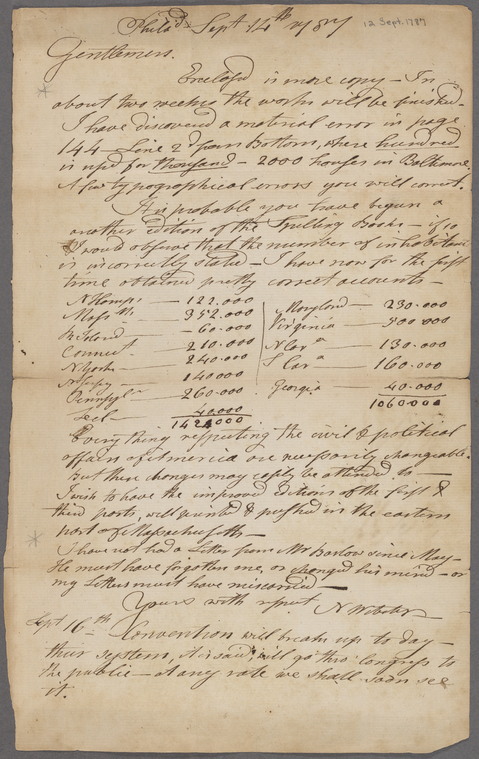 Philad. Sept. 14th 1787
12 Sept. 1787
Gentlemen.
Enclosed is more copy — In
about two weeks the works will be finished.
I have discovered a material error in page
144 — Line 2d from Bottom, where hundred
is used for thousand — 2000 houses in Baltimore.
A few typographical errors you will correct.
It is probable you have begun a
another Edition of the Spelling Books — if so
I would observe that the number of inhabitants
is incorrectly stated — I have now for the first
time obtained pretty correct accounts —
N Hamps — 122.000
Mass ts. — 352.000
R Island — 60.000
Connect. — 210.000
N York — 240.000
N Jersey — 140000
Pennsyla — 260.000
Del — 40.000
1424000
Maryland — 230.000
Virginia — 500 000
N Car a — 130.000
S Car a — 160.000
Georgia — 40.000
1060000
Every thing respecting the civil & political
affairs of America are necessarily changeable.
But these changes may easily be attended to —
I wish to have the improved Editions of the first &
third parts, well printed & pushed in the eastern
part of Massachusetts —
I have not had a Letter from Mr Barlow since May —
He must have forgotten me, or changed his mind — or
my Letters must have miscarried —
Yours with respect N Webster
Sept 16th Convention will break up to day —
their system, it is said, will go thro' Congress to
the public — at any rate we shall soon see
it.